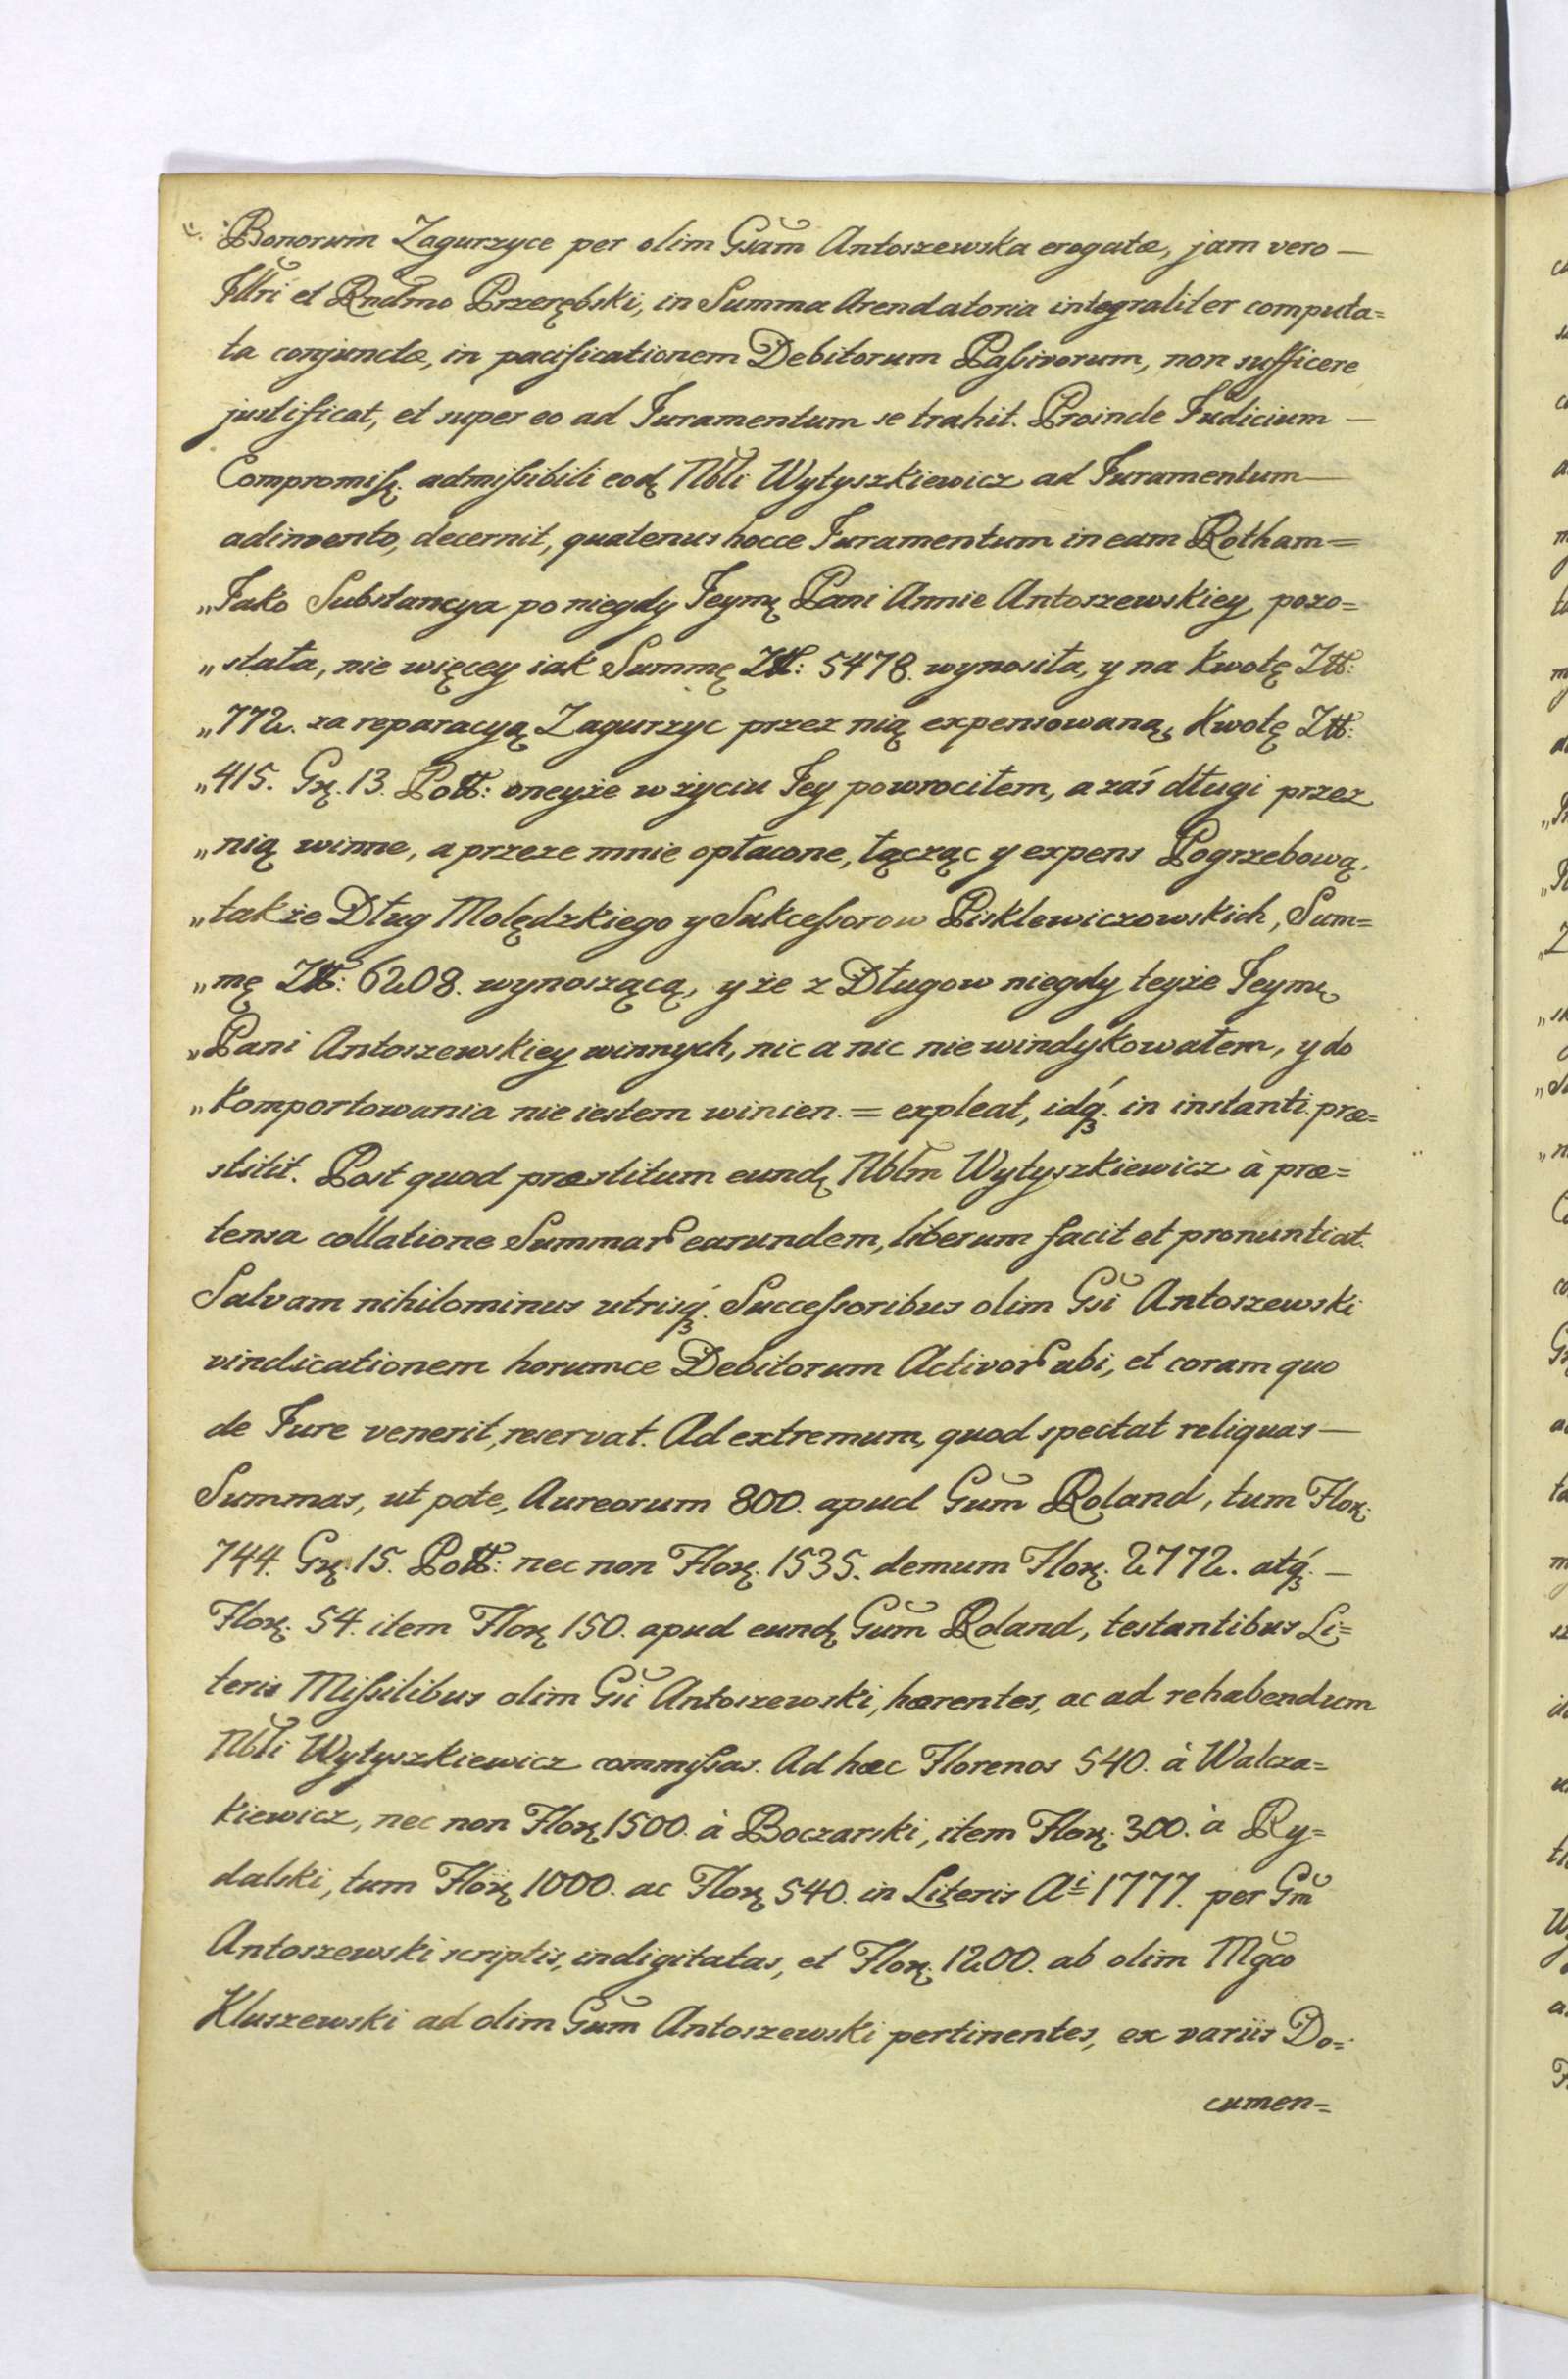 Bonorum Zagurzyce per olim Gsam Antoszewska erogatæ, jam vero —
Jllri et Rndmo Przerębski, in Summa Arendatoria integraliter computa=
ta conjunctæ, in pacificationem Debitorum Paſsivorum, non sufficere
justificat, et super eo ad Juramentum se trahit. Proinde Judicium —
Compromiſs. admiſsibili eod. Nbli Wytyszkiewicz ad Juramentum —
adinvento, decernit, quatenus hocce Juramentum in eam Rotham =
„Jako Substancya po niegdy Jeymę Pani Annie Antoszewskiey pozo=
„stała, nie więcey iak Summę Złł: 5478. wynosiła, y na Kwotę Złł:
„772. za reparacyą Zagurzyc przez nią expensowaną, Kwotę Złł:
„415. Gr. 13. Poll: oneyże w życiu Jey powrociłem, a zaś długi przez
„nią winne, a przeze mnie opłacone, łącząc y expens Pogrzebową,
„także Dług Molędzkiego y Sukceſsorow Pisklewiczowskich, Sum=
„mę Złł: 6208. wynoszącą, y że z Długow niegdy teyże Jeymę
„Pani Antoszewskiey winnych, nic a nic nie windykowałem, y do
„Komportowania nie iestem winien. = expleat, idq́. in instanti præ=
stitit. Post quod præstitum eund. Nblm Wytyszkiewicz à præ=
tensa collatione Summar earundem, liberum facit et pronuntiat.
Salvam nihilominus utrisq́. Succeſsoribus olim Gsi Antoszewski
vindicationem horumce Debitorum Activor ubi, et coram quo
de Jure venerit, reservat. Ad extremum, quod spectat reliquas —
Summas, ut pote, Aureorum 800. apud Gum Roland, tum Flor.
744. Gr. 15. Poll: nec non Flor. 1535. demum Flor. 2772. atq́. —
Flor. 54. item Flor. 150. apud eund. Gum Roland, testantibus Li=
teris Miſsilibus olim Gsi Antoszewski, hærentes, ac ad rehabendum
Nbli Wytyszkiewicz commiſsas. Ad hæc Florenos 540. à Walcza=
kiewicz, nec non Flor. 1500. à Boczarski, item Flor. 300. à Ry=
dalski, tum Flor. 1000. ac Flor. 540. in Literis Ai 1777. per Gm
Antoszewski scriptis, indigitatas, et Flor. 1200. ab olim Mgco
Kluszewski ad olim Gum Antoszewski pertinentes, ex variis Do=
cumen=